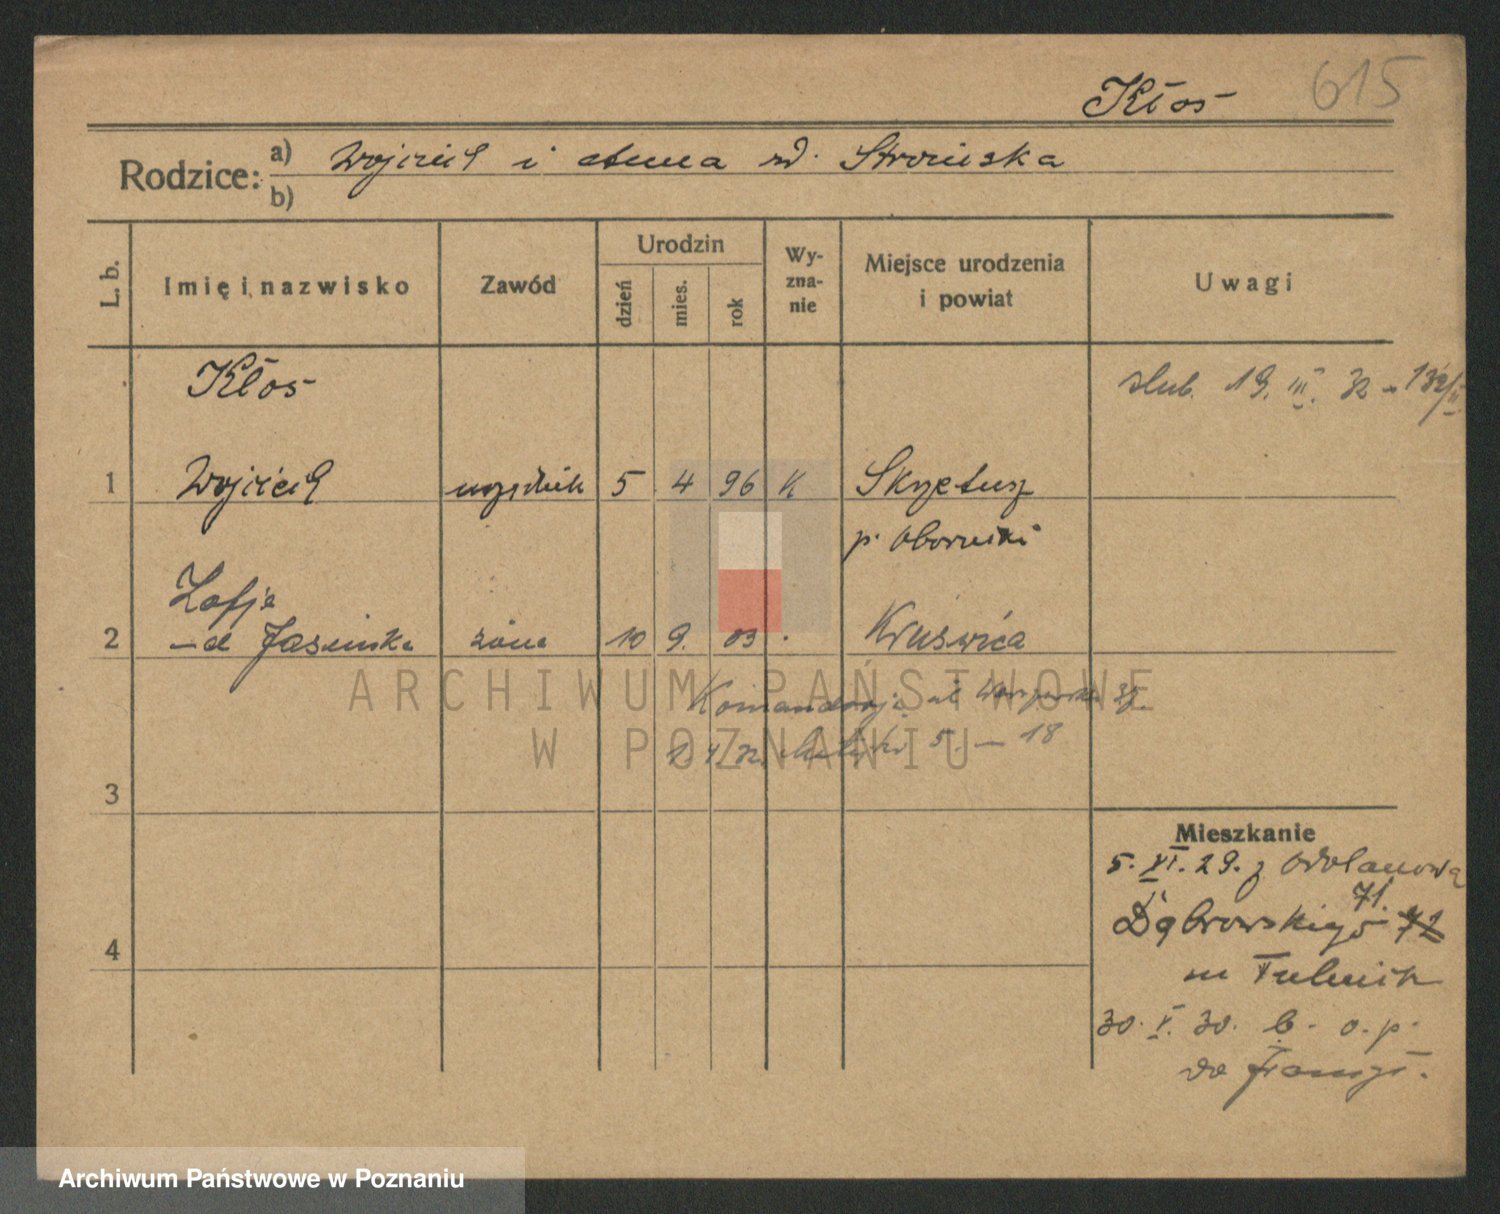 615
Kłos
Rodzice: a) Wojciech i Anna rd. Strońska
b)
L. b.
Imię i nazwisko
Zawód
Urodzin
dzień
mies.
rok
Wy-
zna-
nie
Miejsce urodzenia
i powiat
Uwagi
Kłos
ślub. 19. III. 32
1 Wojciech urzędnik 5 4 96 K Skrzetusz
p. Oborniki
Zofja
2 -d Jasińska żona 10 9. 03 Kruświca
Komandorja
5. - 18
3
Mieszkanie
5. XI. 29. z Odolanowa
71.
Dąbrowskiego 72
4
30. X. 30. b. o. p.
do Francji.
ARCHIWUM PAŃSTWOWE
W POZNANIU
Archiwum Państwowe w Poznaniu